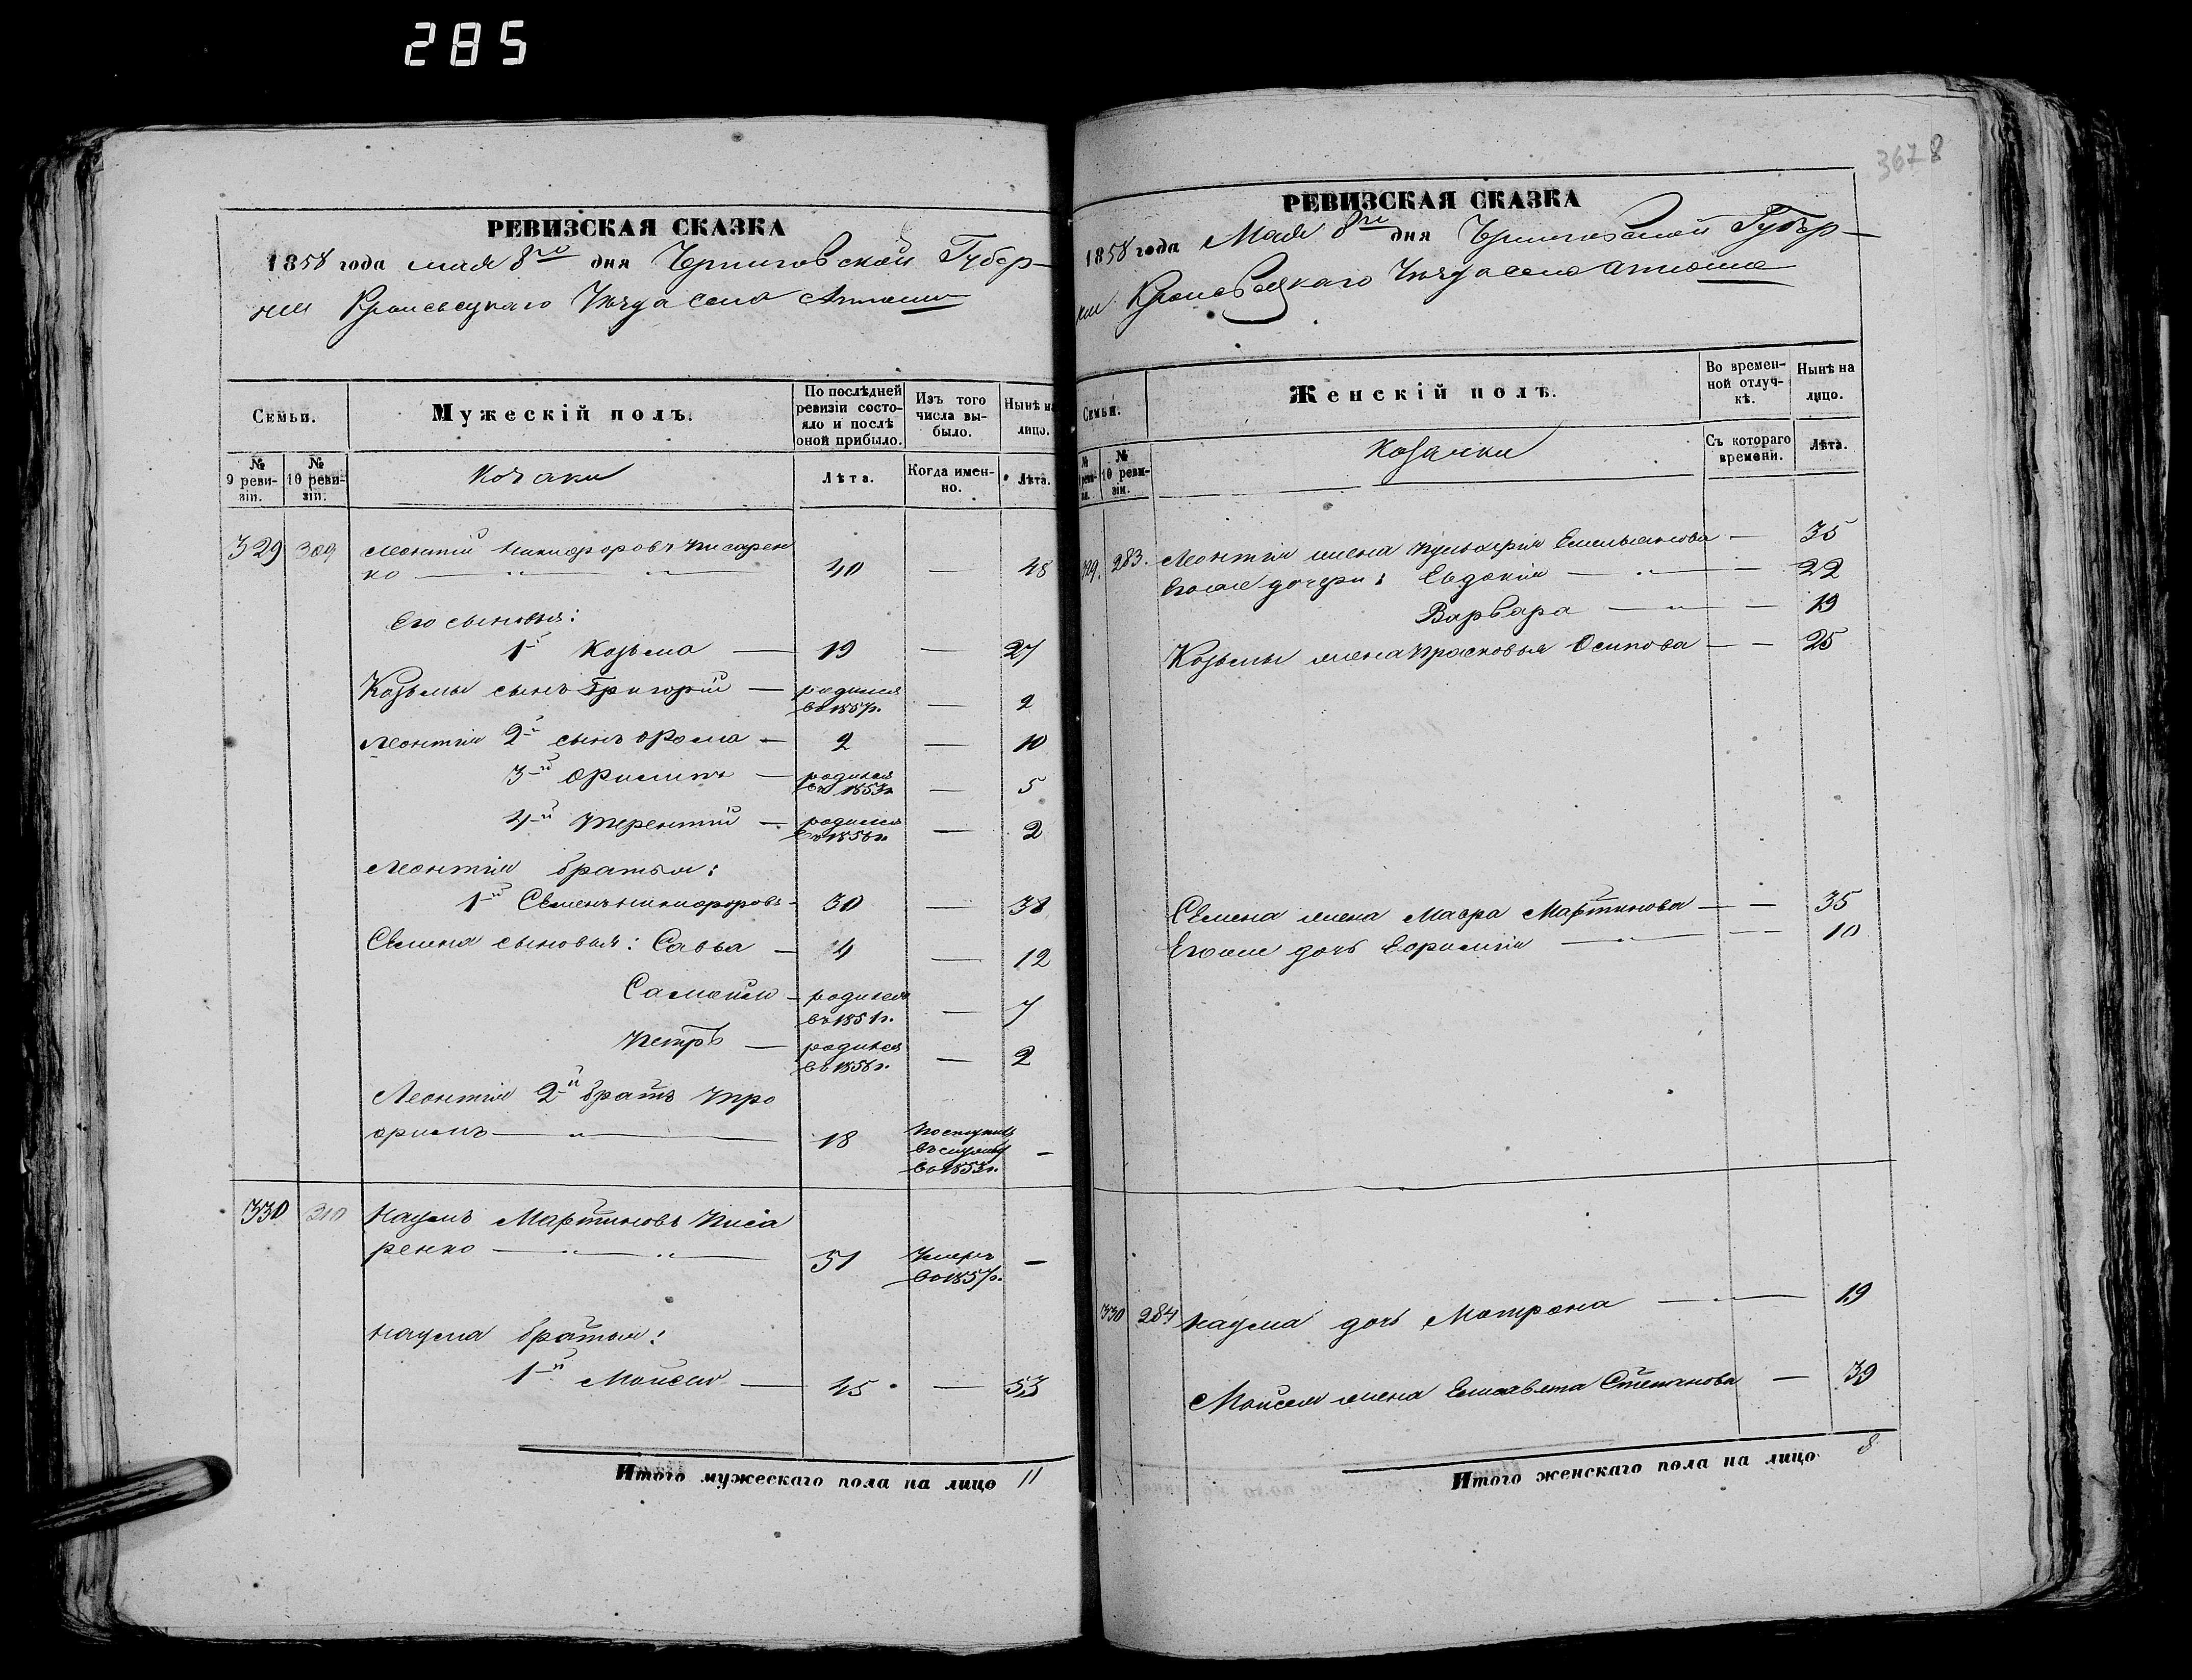 285
РЕВИЗСКАЯ СКАЗКА
1858 года мая 8го дня Черниговской Губер-
нии Кролевецкаго Уѣзда села
Семьи.
Мужескій полъ.
По послѣдней ревизіи состо-
яло и послѣ оной прибыло.
Изъ того числа вы-
было.
Нынѣ на лицо.
№ 9 реви-
зіи.
№ 10 реви-
зіи.
Козаки
Лѣта.
Когда имен-
но.
Лѣта.
329 309 Леонтій Никифоровъ Писарен
ко — 40 — 48
Его сыновья:
1й Козьма — 19 — 27
Козьмы сынъ Григорій — родился въ 1857г. — 2
Леонтія 2й сынъ Фома — 2 — 10
3й Филипъ — родился въ 1853г. — 5
4й Терентій — родился въ 1856г. — 2
Леонтія братья:
1й Семенъ Никифоровъ — 30 — 38
Семена сыновья: Савва — 4 — 12
Самойло — родился въ 1851г. — 7
Петръ — родился въ 1856г. — 2
Леонтія 2й братъ Тро
фимъ — 18 Поступилъ въ службу въ 1853г. —
330 310 Наумъ Мартиновъ Писа
ренко — 51 Умеръ въ 1857г. —
Наума братья:
1й Мойсей — 45 — 53
Итого мужескаго пола на лицо 11
3678
РЕВИЗСКАЯ СКАЗКА
1858 года Мая 8го дня Черниговской Губер-
нии Кролевецкаго Уѣзда села
Семьи.
Женскій полъ.
Во времен-
ной отлуч-
кѣ.
Нынѣ на лицо.
№ 10 реви-
зіи.
Козачки
Съ котораго времени.
Лѣта.
329. 283. Леонтія жена Пульхерія Емельянова — 35
Егоже дочери: Евдокия — 22
Варвара — 19
Козьмы жена Прасковья Осипова — 25
Семена жена Мавра Мартинова — 35
Егоже дочь Ефимія — 10
330 284 Наума дочь Матрона — 19
Мойсея жена Елисавета Степанова — 39
Итого женскаго пола на лицо 8